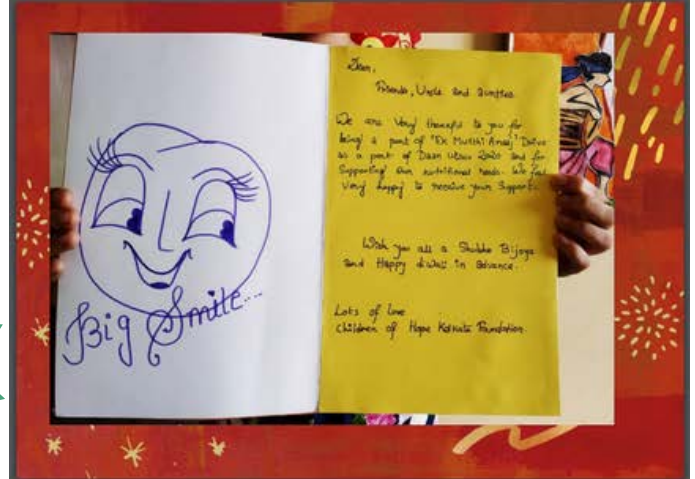 Big Smile...
Dear,
Friends, Uncle and Aunties.
We are Very thankful to you for
being a part of "Ek Mutthi Anaaj" Drive
as a part of Daan Utsav 2020 and for
Supporting our nutritional needs. We feel
Very happy to receive your Support.
Wish you all a Shubho Bijoya
and Happy diwali in advance.
Lots of love
Children of Hope Kolkata Foundation.